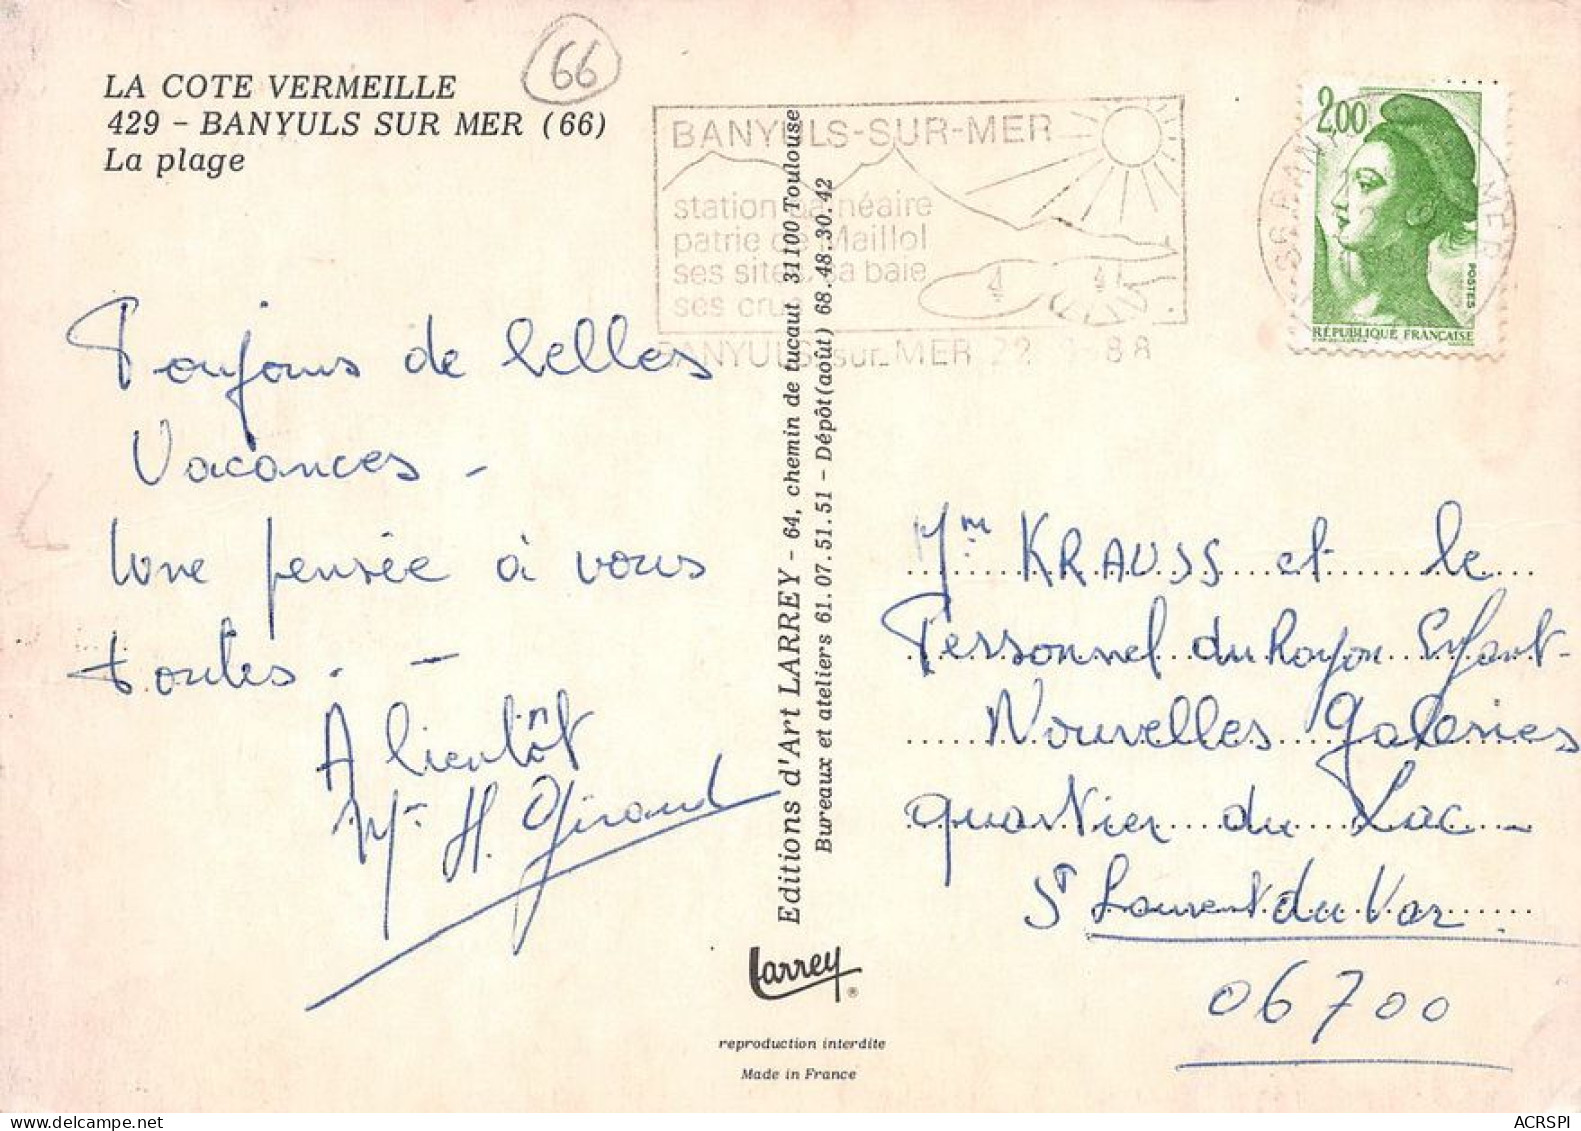 LA COTE VERMEILLE
429 - BANYULS SUR MER (66)
La plage
66
BANYULS-SUR-MER
station balnéaire
patrie de Maillol
ses sites, sa baie
ses crus
BANYULS-sur-MER 22 88
2,00
POSTES
RÉPUBLIQUE FRANÇAISE
Toujours de belles
Vacances -
Une pensée à vous
toutes. -
A bientôt
H. Giraud
Editions d'Art LARREY - 64, chemin de tucaut 31100 Toulouse
Bureaux et ateliers 61.07.51.51 - Dépôt (août) 68.48.30.42
Mm KRAUSS et le
Personnel du Rayon Enfant-
Nouvelles Galeries
quartier du Lac -
St Laurent du Var
06700
Larrey ®
reproduction interdite
Made in France
ACRSPI